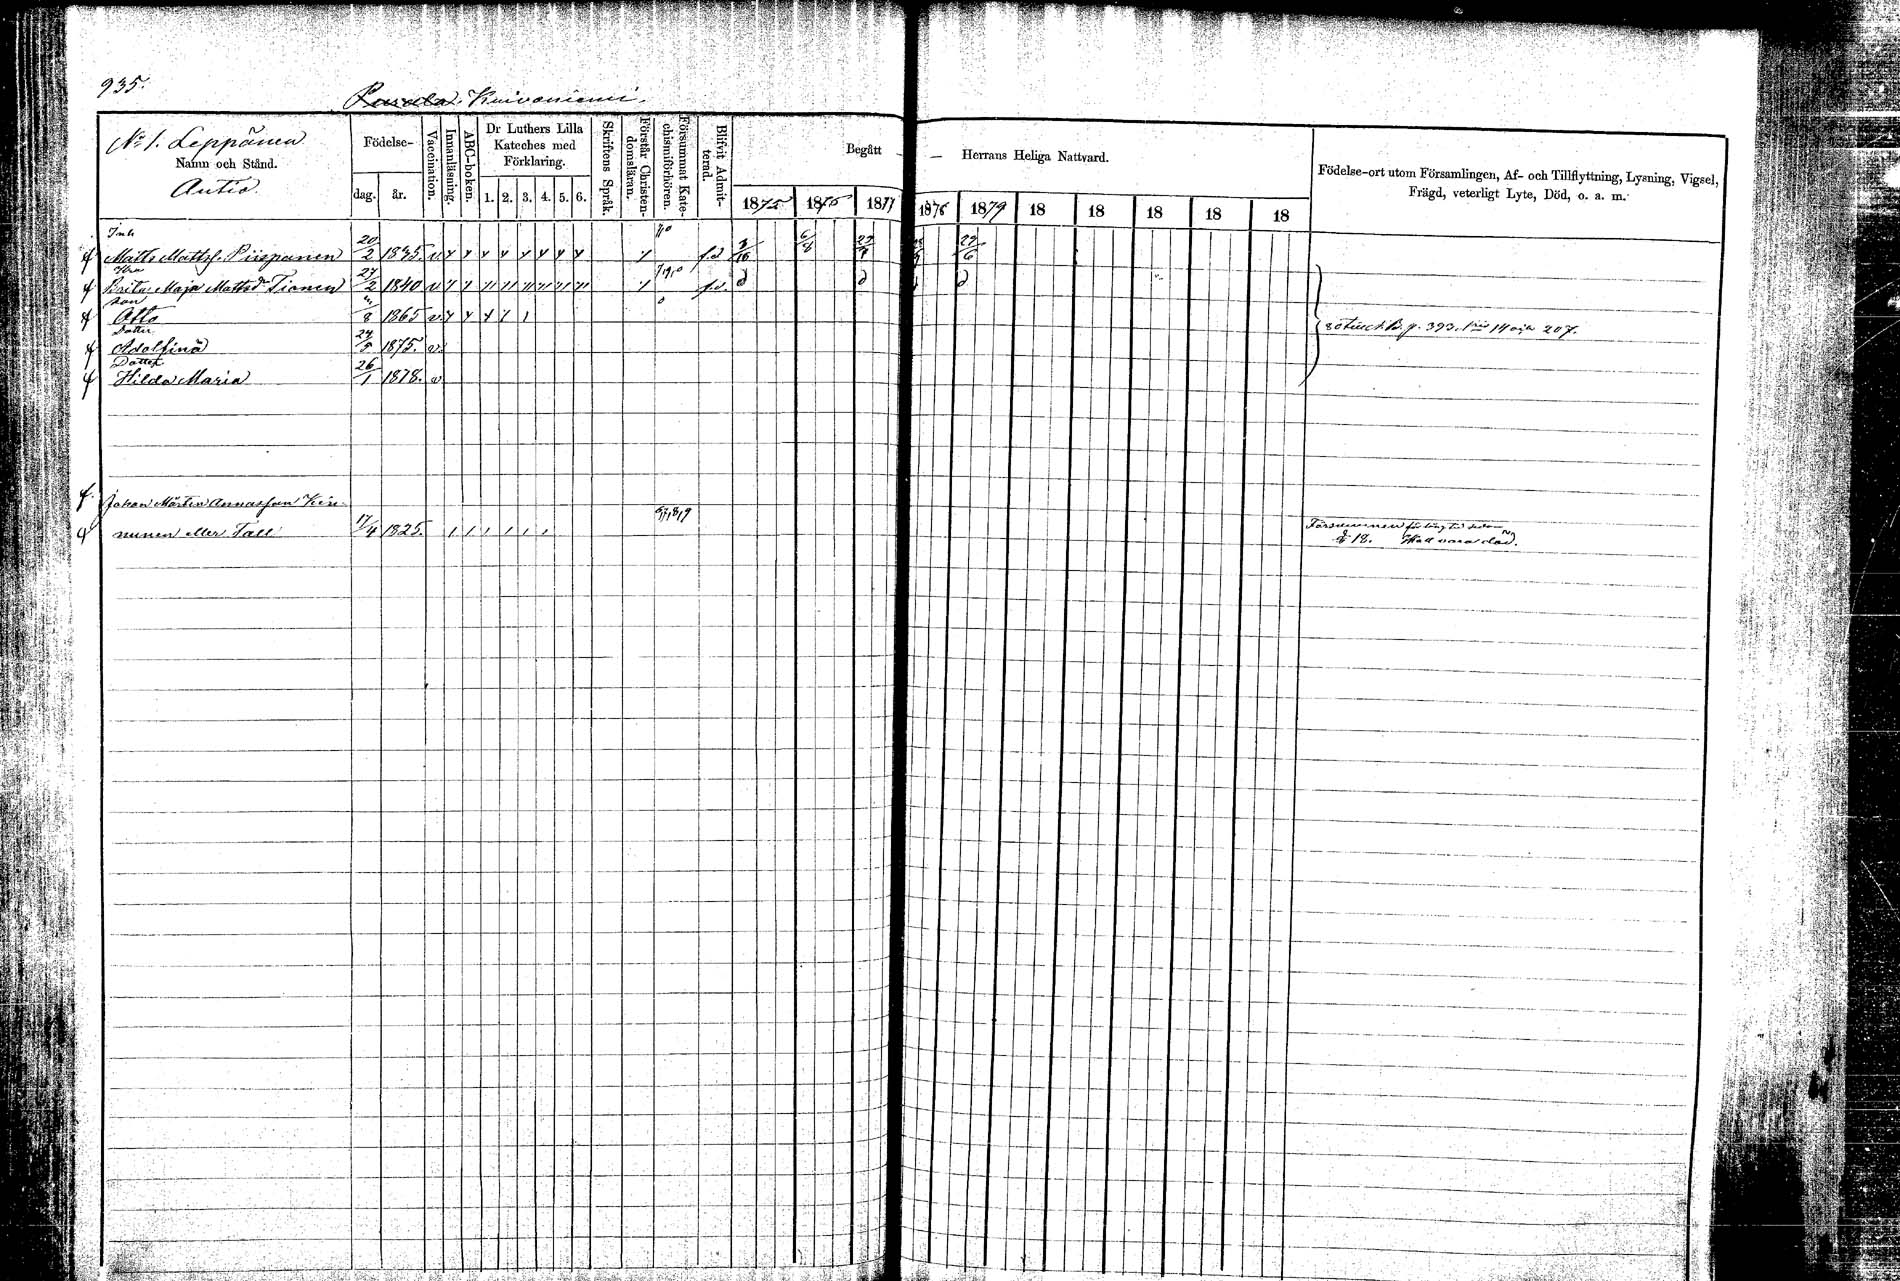 935.
Pusula. Kuivaniemi.
No 1. Leppänen
Namn och Stånd.
Autio.
Födelse-
dag. år.
Vaccination.
Innanläsning.
ABC-boken.
Dr Luthers Lilla
Kateches med
Förklaring.
1. 2. 3. 4. 5. 6.
Skriftens Språk.
Förstår Christen-
domsläran.
Försummat Kate-
chismiförhören.
Blifvit Admit-
terad.
Begått — — Herrans Heliga Nattvard.
1875 1876 1877 1878 1879 18 18 18 18 18
Födelse-ort utom Församlingen, Af- och Tillflyttning, Lysning, Vigsel,
Frägd, veterligt Lyte, Död, o. a. m.
Inh
Matts Mattss. Piispanen 20/2 1835. v.
Brita Maja Mattsd Tianen 27/2 1840 v
son
Otto 1865 v.
Dotter
Adolfina 24/5 1875. v.
Dotter
Hilda Maria 26/1 1878. v
Johan Mårten Annasson Kin-
nunen eller Fall 17/4 1825.